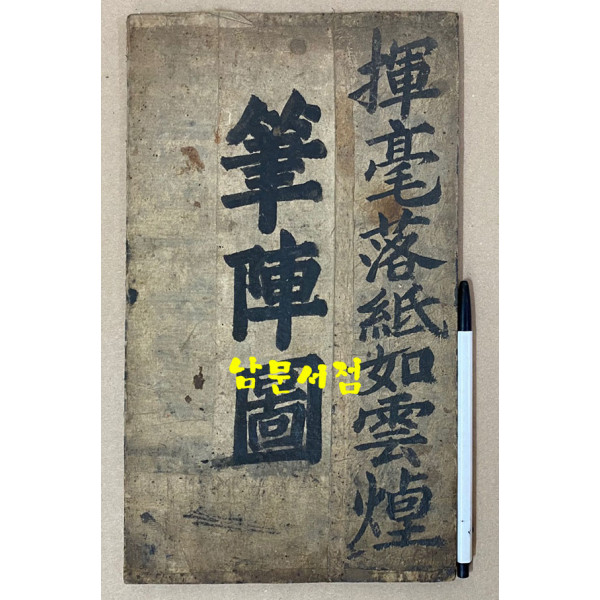 揮毫落紙如雲煙
筆陣圖
남문서점